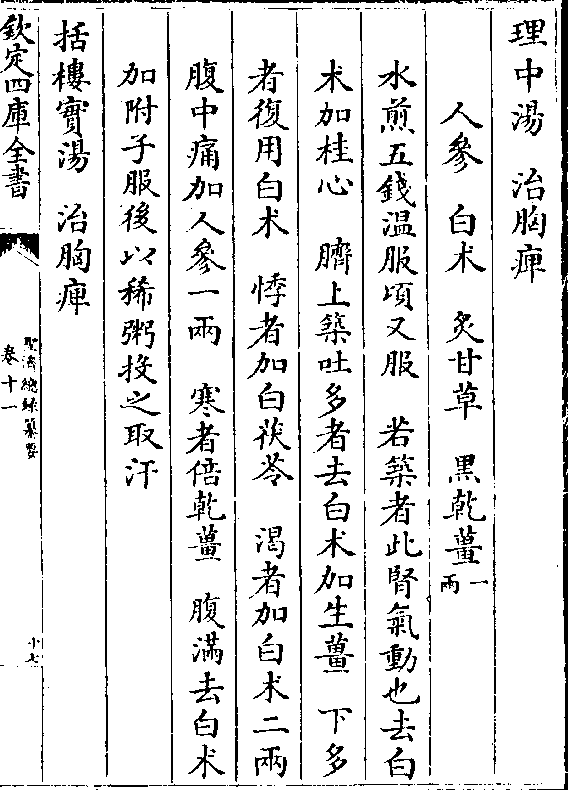 理中湯　治胸痺
人參　白术　炙甘草　黑乾薑一兩
水煎五錢温服頃又服　若築者此腎氣動也去白
术加桂心　臍上築吐多者去白术加生薑　下多
者復用白术　悸者加白茯苓　渴者加白术二兩
腹中痛加人參一兩　寒者倍乾薑　腹滿去白术
加附子服後以稀粥投之取汗
括樓實湯　治胸痺
欽定四庫全書
聖濟總錄纂要
卷十一
十七